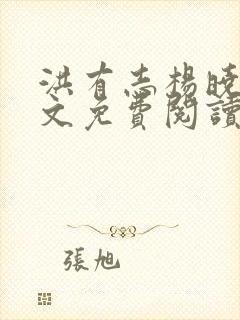 洪有志楊曉
文免費閱讀
張旭